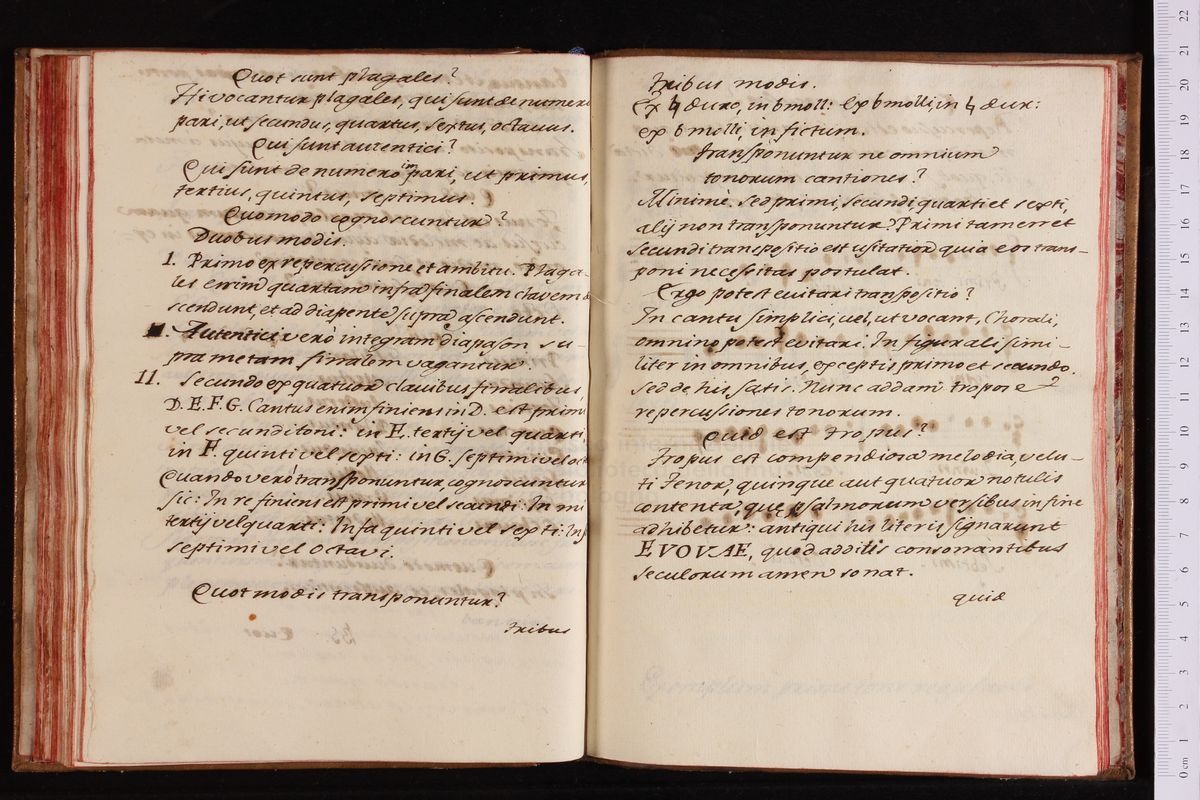 Quot sunt plagales?
Hi vocantur plagales, qui sunt de numero
pari, ut secundus, quartus, sextus, octauus.
Qui sunt autentici?
Qui sunt de numero impari, ut primus,
tertius, quintus, septimus.
Quomodo cognoscuntur?
Duobus modis.
1. Primo ex repercussione et ambitu. Plaga-
les enim quartam infra finalem clavem de
scendunt, et ad diapente supra ascendunt.
Autentici verò integram diapason su-
pra metam finalem vagantur.
11. Secundo ex quatuor clauibus finalibus,
D. E. F. G. Cantus enim finiens in D. est primi
vel secundi toni: in E. tertij vel quarti,
in F. quinti vel sexti: in G. septimi vel oct
Quando verò transponuntur, cognoscuntur
sic: In re finiens est primi vel secundi: In mi
tertij vel quarti: In fa quinti vel sexti: In s
septimi vel octavi.
Quot modis transponuntur?
Tribus
Tribus modis.
Ex ♮ duro, in b moll: Ex b molli, in ♮ dur:
ex b molli in fictum.
Transponuntur ne omnium
tonorum cantiones?
Minime. Sed primi, secundi quarti et sexti,
alij non transponuntur. Primi tamen et
secundi transpositio est usitatior quia eos trans-
poni necessitas postulat.
Ergo potest euitari transpositio?
In cantu simplici, uel, ut vocant, Chorali,
omnino potest evitari. In figurali simi-
liter in omnibus, exceptis primo et secundo.
Sed de his satis. Nunc addam tropos et
repercussiones tonorum.
Quid est Tropus?
Tropus est compendiosa melodia, velu-
ti Tenor, quinque aut quatuor notulis
contenta, quę psalmorum versibus in fine
adhibetur: antiqui his literis signarunt
EVOVAE, quod additis consonantibus
seculorum amen sonat.
quid